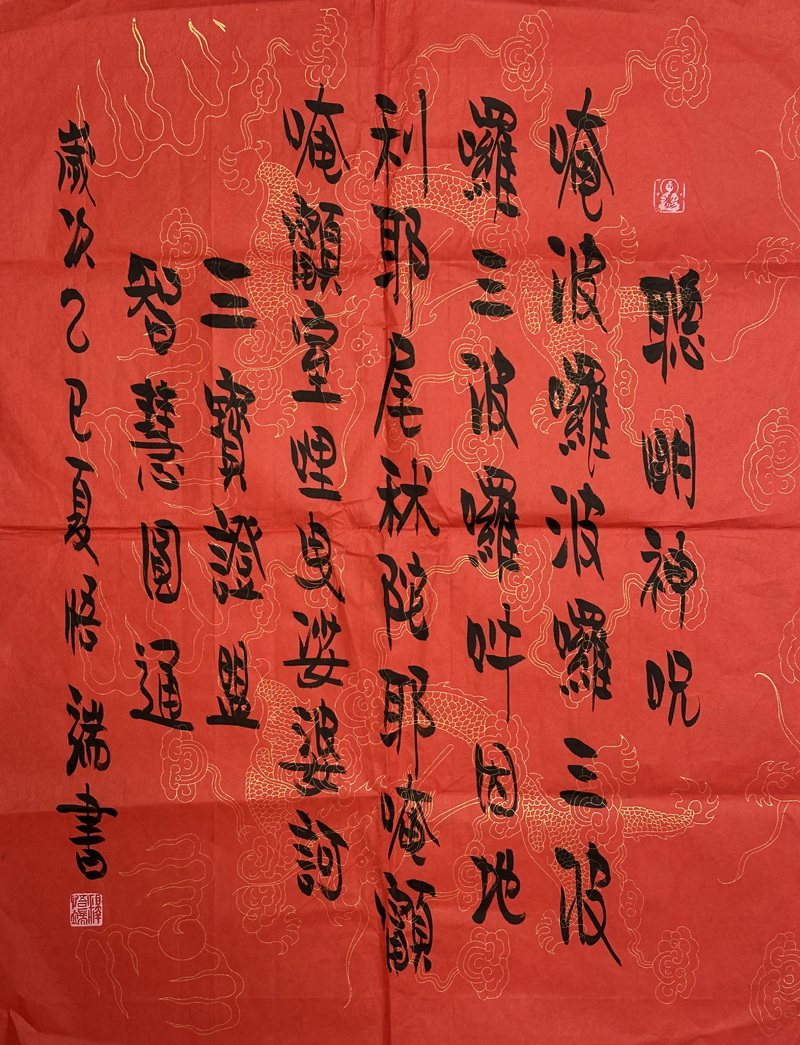 聰明神咒
唵波囉波囉三波
囉三波囉吽因地
利耶尾秫陀耶唵
唵室哩曳娑婆訶
三寶證盟
智慧圓通
歲次乙巳夏悟書